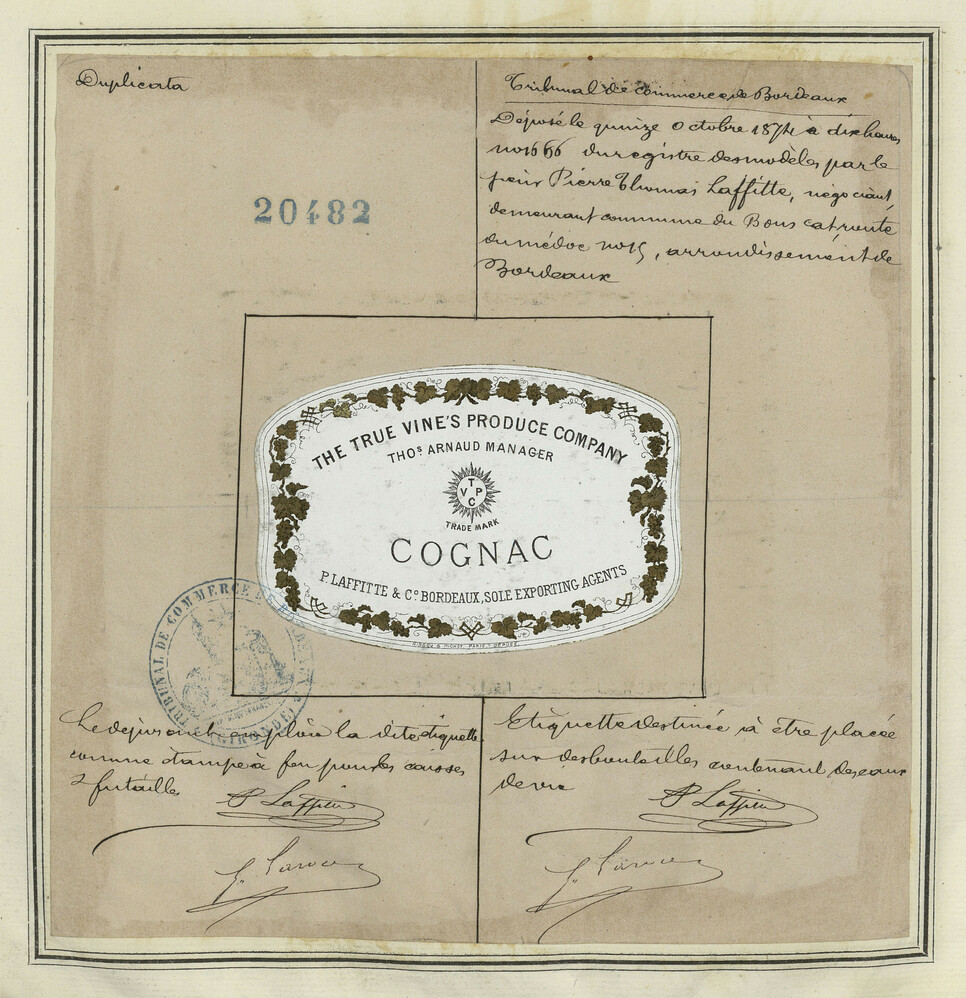 Duplicata
20482
Tribunal de Commerce de Bordeaux
Déposé le quinze Octobre 1874 à dix heures
no 1666 du registre des modèles par le
Pierre Thomas Laffitte, négociant,
demeurant commune du Bouscat route
du médoc no 15, arrondissement de
Bordeaux
THE TRUE VINE'S PRODUCE COMPANY
THOS ARNAUD MANAGER
T
V P
C
TRADE MARK
COGNAC
P. LAFFITTE & Co BORDEAUX, SOLE EXPORTING AGENTS
TRIBUNAL DE COMMERCE DE BORDEAUX
(GIRONDE)
Le déposant emploie la dite étiquette
comme étampe à feu pour les caisses
& futailles
P Laffitte
Etiquette destinée à être placée
sur des bouteilles contenant des eaux
de vie
P Laffitte